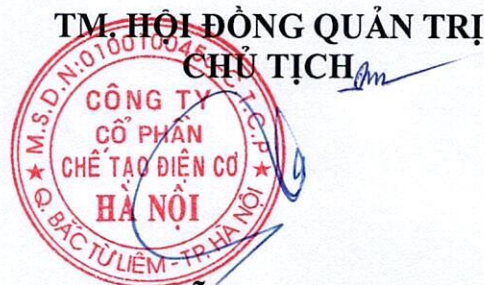 TM. HỘI ĐỒNG QUẢN TRỊ
CHỦ TỊCH
CÔNG TY
CỔ PHẦN
CHẾ TẠO ĐIỆN CƠ
HÀ NỘI
Q. BẮC TỪ LIÊM - TP. HÀ NỘI